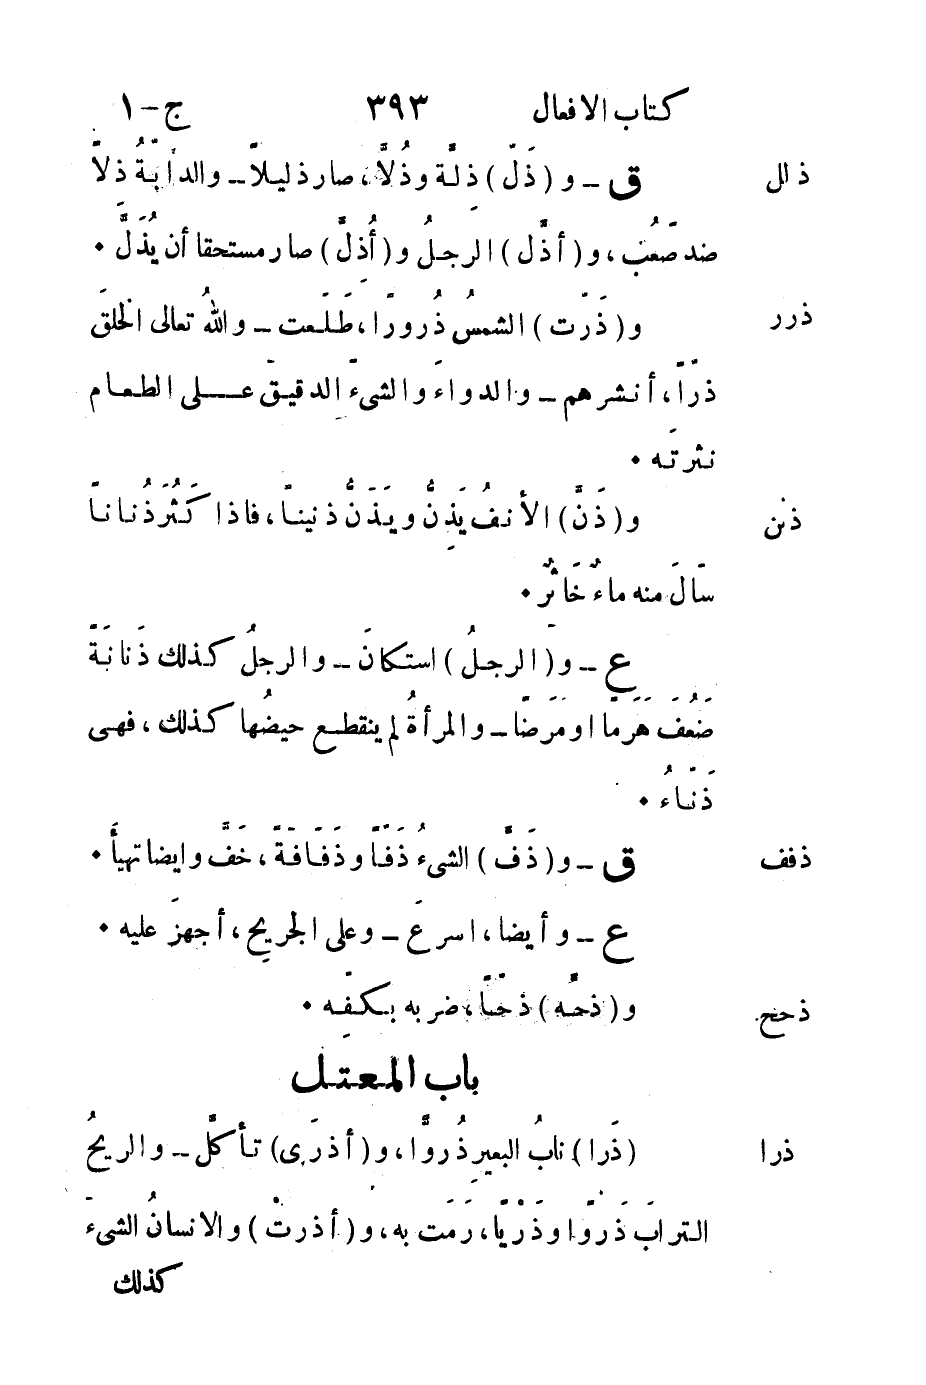 كتاب الافعال ٣٩٣ ج-١
ذلل ق ـ و (ذَلّ) ذِلَّة وذُلاًّ، صار ذليلاً ـ والدابَّةُ ذِلاًّ
ضد صَعُب، و(أذَلَّ) الرجلُ و(أُذِلَّ) صار مستحقا أن يُذَلَّ •
ذرر و(ذَرّت) الشمسُ ذُرورًا، طَلَعت ـ واللهُ تعالى الخلقَ
ذرًّا، أنشرهم ـ والدواءَ والشىءَ الدقيقَ عـــلى الطعـام
نثرتَه •
ذنن و(ذَنَّ) الأنفُ يَذِنُّ ويَذَنُّ ذنينًا، فاذا كَثُرَ ذُنانًا
سَالَ منه ماءٌ خَاثِرٌ •
ع ـ و(الرجلُ) استكانَ ـ والرجلُ كذلك ذَنانَةً
ضَعُفَ هَرَمًا او مَرَضًا ـ والمرأةُ لم ينقطع حيضُها كذلك، فهى
ذَنّاءُ •
ذفف ق ـ و(ذَفَّ) الشىءُ ذَفًّا وذَفَافَةً، خَفَّ وايضا تهيأَ •
ع ـ وأيضا، اسرعَ ـ وعلى الجريحِ، أجهزَ عليه •
ذحح و(ذحَّه) ذحًّا، ضربه بكفِّه •
باب المعتل
ذرا (ذَرا) نابُ البعيرِ ذُروًّا، و(أذرَى) تأكلَّ ـ والريحُ
الترابَ ذَروًا وذَرْيًا، رَمَت به، و(أذرتْ) والانسانُ الشىءَ
كذلك